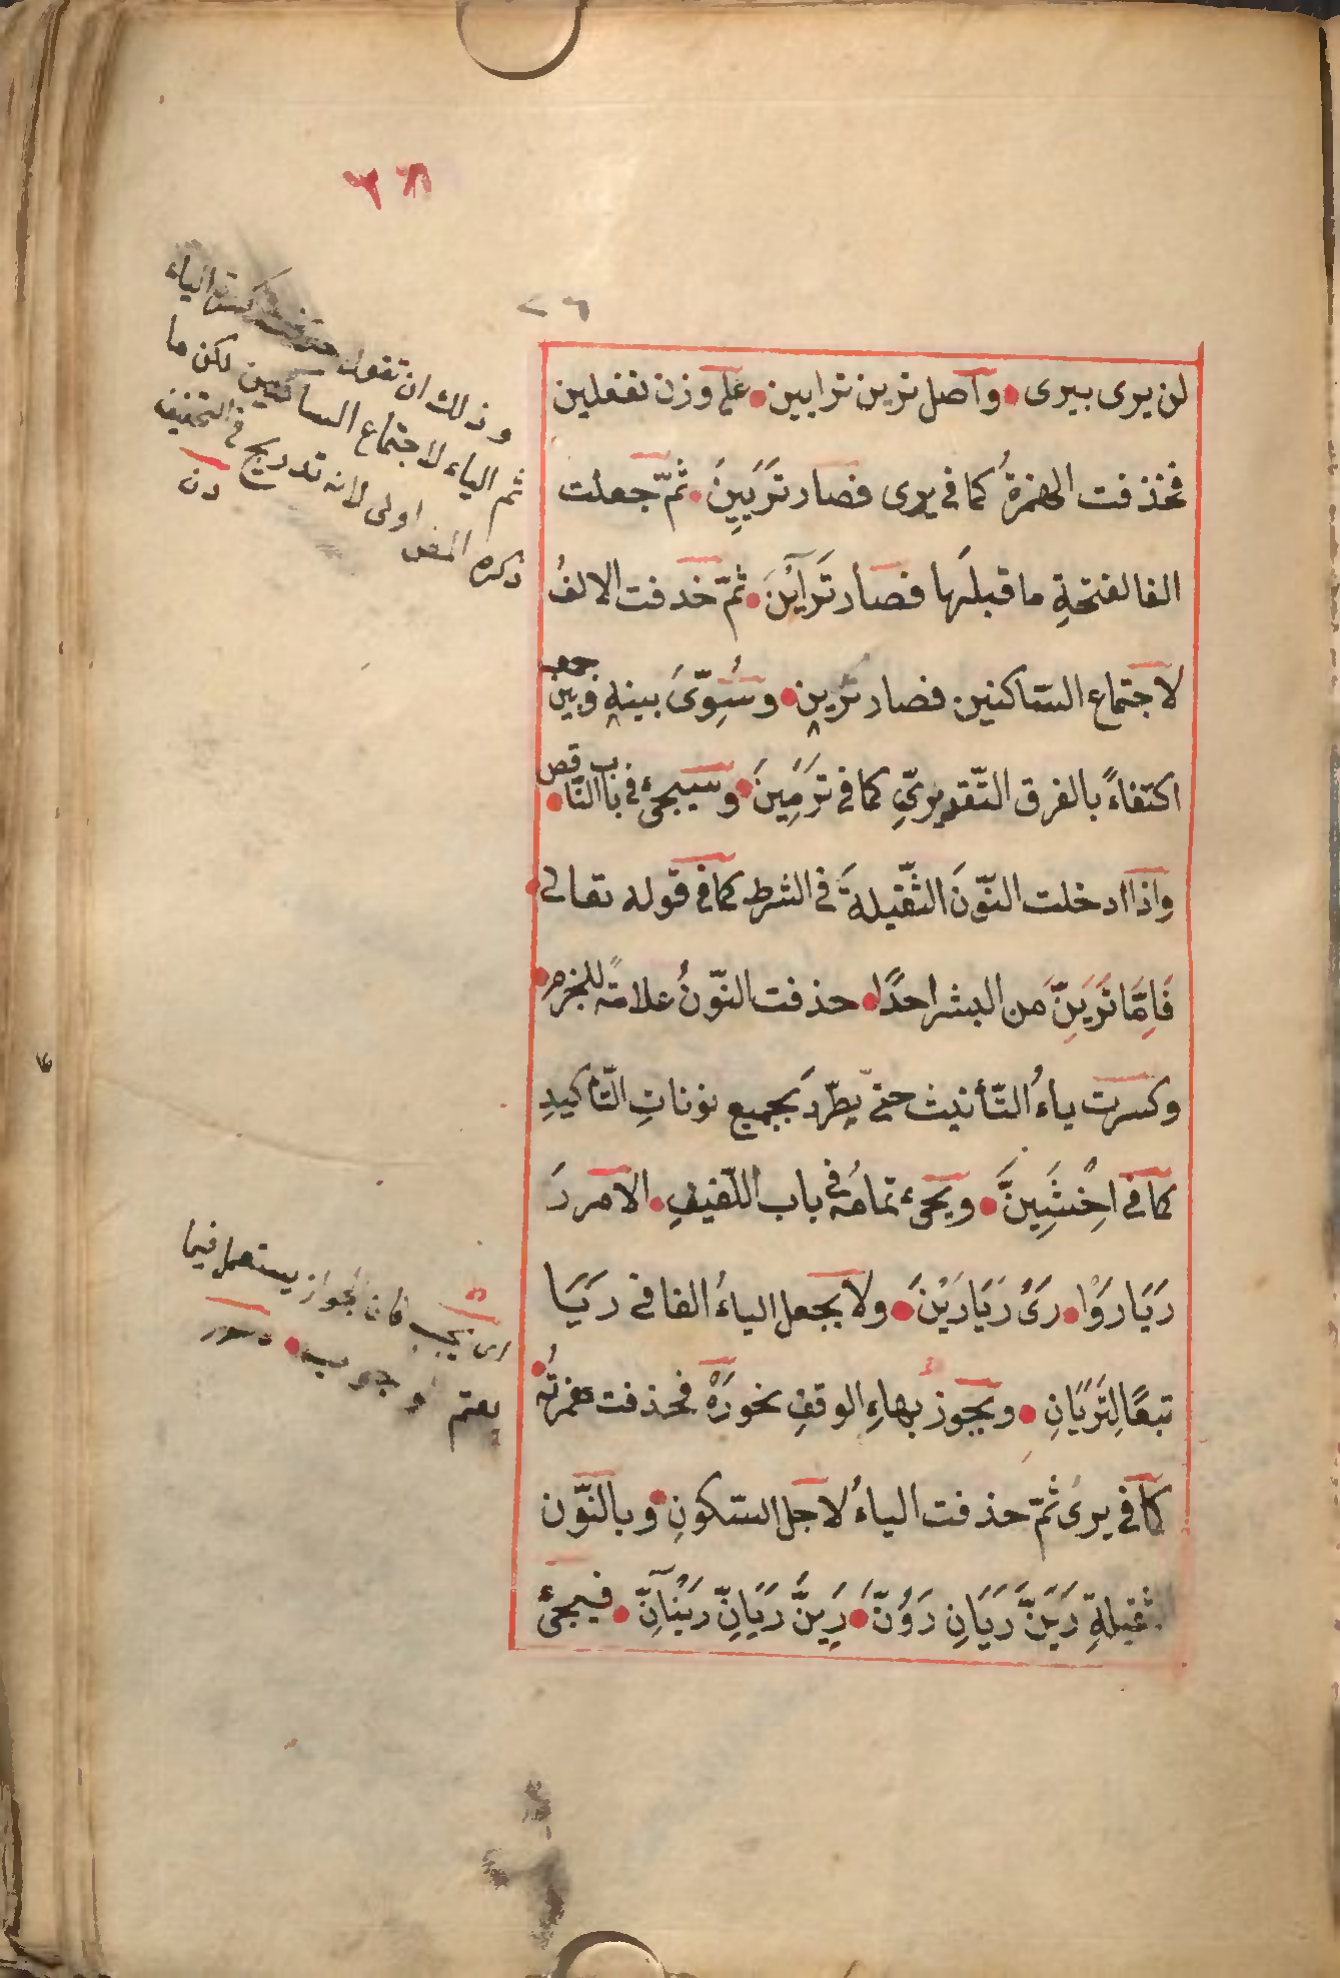 ٣٨
٢٦
لن يرى بيرى • واصل ترين ترايين • على وزن تفعلين
فحذفت الهمزةُ كما في يرى فصار تَرَيِينَ • ثمّ جعلت
الفا لفتحةِ ما قبلَها فصار تَرَايْنَ • ثمّ حذفت الالفُ
لاجتماع السّاكنين فصار ترين • وسُوِّىَ بينه وبين جمعه
اكتفاءً بالفرق التّقديريِّ كما في تَرمِينَ • وسيجئ في باب النّاقص •
واذا ادخلت النّونَ الثّقيلةَ في الشرط كما في قوله تعالى •
فَاِمَّا تَرَيِنَّ من البشر احدًا • حذفت النّونُ علامةً للجزم •
وكسرت ياءُ التّأنيث حتّى يطّردَ بجميع نوناتِ التّأكيدِ
كما في اخْشَيِنَّ • ويجئ تمامُه في باب اللّفيفِ • الامر رَ
رَيَا رَوْا • رَىْ رَيَا رَيْنَ • ولا يجعل الياءُ الفا في رَيَا
تبعًا لِتَرَيَانِ • ويجوز بهاءِ الوقفِ نحو رَهْ فحذفت همزتُه •
كما في يرى ثمّ حذفت الياءُ لاجل السّكونِ • وبالنّون
الثقيلةِ رَيَنَّ رَيَانِّ رَوُنَّ • رَيِنَّ رَيَانِّ رَيْنَانِّ • فيجئ
وذلك ان تقول حذفت كسرة الياء
ثم الياء لاجتماع الساكنين لكن ما
ذكره المص اولى لانه تدريج في التخفيف
اى يجب فان الجواز يستعمل فيما
يعم وجوب •